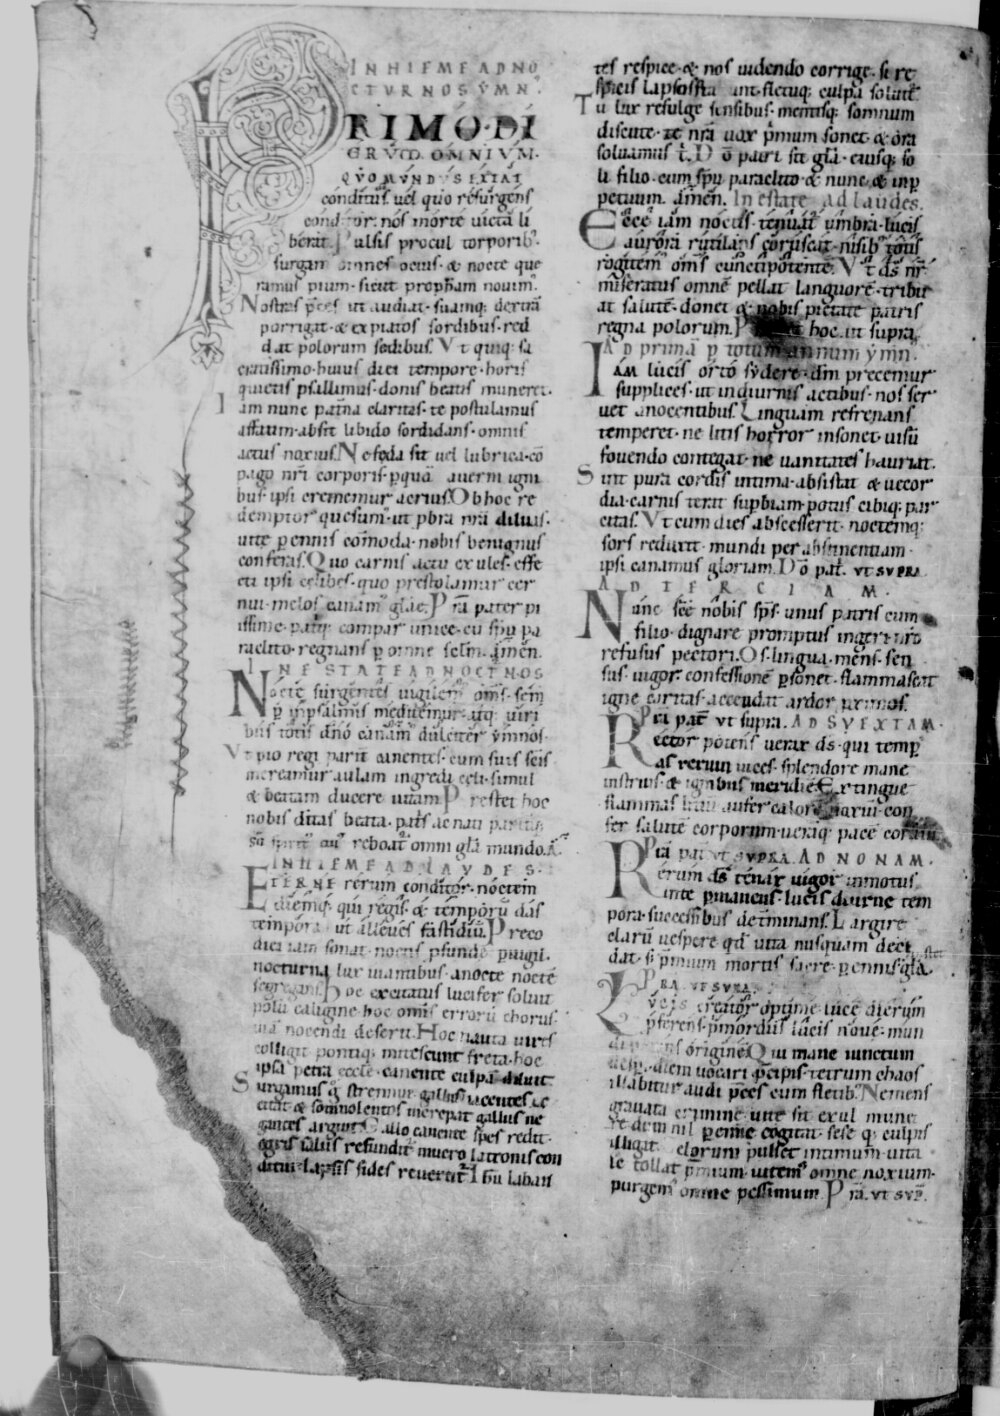 IN HIEME AD NO
CTVRNOS YMN
PRIMO DI
ERVM OMNIVM·
QVO MVNDVS EXTAT
conditus uel quo resurgens
conditor· nos morte uicta li
berat· Pulsis procul torporib;
surgamus omnes ocius· & nocte que
ramus pium· sicut propham nouim;
Nostras pces ut audiat· suamq; dexterā
porrigat· & expiatos sordibus· red
dat polorum sedibus· Vt quiq; sa
cratissimo· huius diei tempore· horis
quietis psallimus· donis beatis muneret·
Iam nunc patna claritas· te postulamus
affatim· absit libido sordidans· omnis
actus noxius· Ne feda sit uel lubrica· cō
pago nri corporis· p quā auerni igni
bus· ipsi crememur acrius· Ob hoc re
demptor quesum; ut pbra nrā diluas·
uite pennis cōmoda· nobis benignus
conferas· Quo carnis actu exules· effe
cti ipsi celibes· quo prestolamur cer
nui· melos canam; gliae· Prā pater pi
issime· patriq; compar unice· cū spū pa
raclito· regnans p omne sclm· amen·
IN ESTATE AD NOCTNOS
Nocte surgentes uigilem; oms· sem
p in psalmis meditemur· atq; uiri
bus totis dnō canam; dulciter ymnos·
Vt pio regi parit canentes· cum suis scis
mereamur aulam ingredi celi· simul
& beatam ducere uitam· Prestet hoc
nobis ditas beata· patis ac nati paritq;
sci spiritus cui; reboat omni glā mundo· A
IN HIEME AD LAVDES·
ETERNE rerum conditor· noctem
diemq; qui regis· & temporū das
tempora· ut alleues fastidiū· Preco
diei iam sonat· noctis pfunde puigil·
nocturna lux uiantibus· a nocte nocte
segregans· Hoc excitatus lucifer soluit
polū caligine· hoc omis errorū chorus·
uiā nocendi deserit· Hoc nauta uires
colligit pontiq; mitescunt freta· hoc
ipsa petra eccle· canente culpā diluit·
Surgamus g strennue· gallus iacentes ex
citat· & somnolentos increpat gallus ne
gantes arguit· Gallo canente spes redit·
egris salus refunditur mucro latronis con
ditur· lapsis fides reuertit· Ihu laban
tes respice· & nos uidendo corrige· si re
spicis lapsos sta unt· fletuq; culpa soluit
Tu lux refulge sensibus· mentisq; somnum
discute· te nrā uox pmum sonet· & ora
soluamus t· Dō patri sit glā· eiusq; so
li filio· cum spū paraclito· & nunc & in p
petuum· amen· In estate ad laudes·
Ecce iam noctis· tenuat umbra· lucis
aurora rutilans coruscat· nisib; totis
rogitem; oms cunctipotente· Vt ds nr
miseratus omnē pellat languorē· tribu
at salutē· donet & nobis pietate patris
regna polorum· P hoc· ut supra
AD primā p totum annum ymn·
IAM lucis orto sydere· dm precemur
supplices· ut in diurnis actibus· nos ser
uet a nocentibus· Linguam refrenans
temperet· ne litis horror insonet· uisū
fouendo contegat· ne uanitates hauriat·
Sint pura cordis intima· absistat & uecor
dia· carnis terat supbiam· potus cibiq; par
citas· Vt cum dies abscesserit· noctemq;
sors reduxit· mundi per abstinentiam·
ipsi canamus gloriam· Dō pat· VT SVPRA
AD TERCIAM·
Nunc scē nobis sps· unus patris cum
filio· dignare promptus ingeri· nro
refusus pectori· Os· lingua· mens· sen
sus· uigor· confessionē psonet· flammascat
igne caritas· accendat ardor pximos·
Prā pat VT supra· AD SVEXTAM·
Rector potens uerax ds· qui temp
as rerum uices· splendore mane
instruis· & ignibus meridiē· Extingue
flammas litiū· aufer calorē noxium· con
fer salutē corporum· ueraq; pacē cordiū
Prā pat VT SVPRA· AD NONAM·
Rerum ds tenax uigor· inmotus
in te pmanens· lucis diurne tem
pora· successibus determinans· Largire
clarū uespere qd uita nusquam deci
dat· si pmium mortis sacre· pennis· glā·
PRA VT SVPRA
Lucis creator optime· lucē dierum
pferens· pmordiis lucis noue· mun
di parans originē· Qui mane iunctum
uesp; diem uocari pcipis· tetrum chaos
illabitur audi pces cum fletib; Ne mens
grauata crimine· uite sit exul mune
re· dum nil penne cogitat· sese q; culpis
illigat· celorum pulset intimum· uita
le tollat pmium· uitem; omne noxium·
purgem; omne pessimum· Prā· VT SVP·